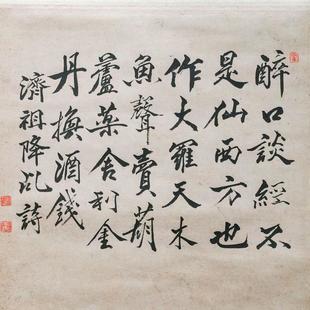 醉口談經不
是仙西方也
作大羅天木
魚聲賣葫
蘆藥舍利金
丹換酒錢
濟祖降乩詩